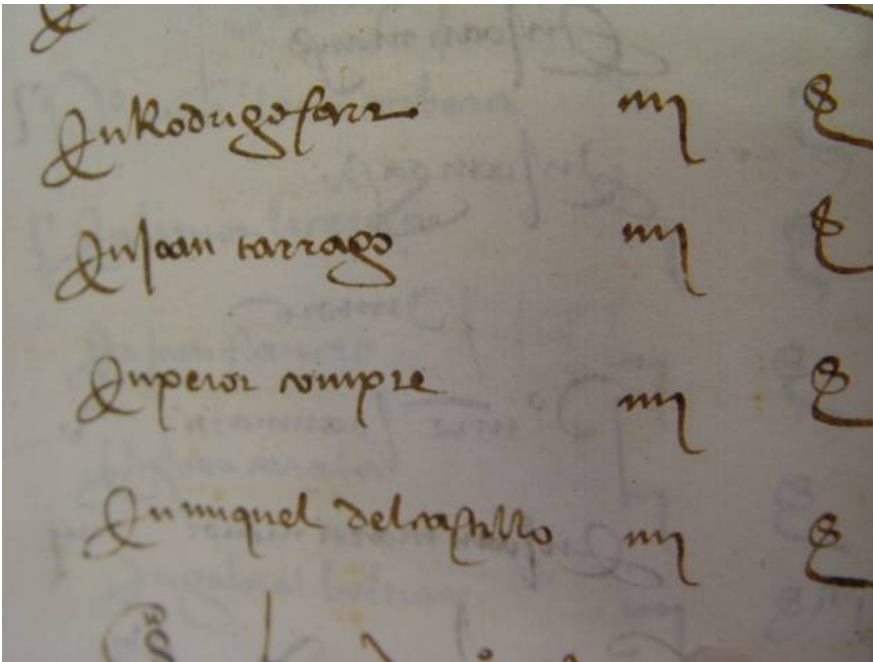 En Rodrigo ferr iiij s
En Joan tarrago iiij s
En perot compte iiij s
En miquel del castillo iiij s